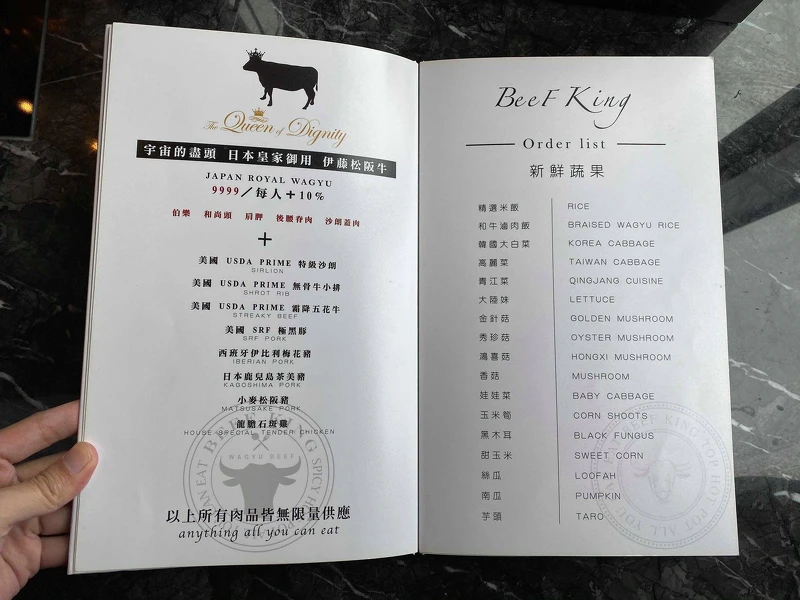 The Queen of Dignity
宇宙的盡頭 日本皇家御用 伊藤松阪牛
JAPAN ROYAL WAGYU
9999／每人＋10%
伯樂 和尚頭 肩胛 後腰脊肉 沙朗蓋肉
＋
美國 USDA PRIME 特級沙朗
SIRLION
美國 USDA PRIME 無骨牛小排
SHROT RIB
美國 USDA PRIME 霜降五花牛
STREAKY BEEF
美國 SRF 極黑豚
SRF PORK
西班牙伊比利梅花豬
IBERIAN PORK
日本鹿兒島茶美豬
KAGOSHIMA PORK
小麥松阪豬
MATSUSAKE PORK
龍膽石斑雞
HOUSE SPECIAL TENDER CHICKEN
WAGYU BEEF
以上所有肉品皆無限量供應
anything all you can eat
Beef King
Order list
新鮮蔬果
精選米飯 RICE
和牛滷肉飯 BRAISED WAGYU RICE
韓國大白菜 KOREA CABBAGE
高麗菜 TAIWAN CABBAGE
青江菜 QINGJANG CUISINE
大陸妹 LETTUCE
金針菇 GOLDEN MUSHROOM
秀珍菇 OYSTER MUSHROOM
鴻喜菇 HONGXI MUSHROOM
香菇 MUSHROOM
娃娃菜 BABY CABBAGE
玉米筍 CORN SHOOTS
黑木耳 BLACK FUNGUS
甜玉米 SWEET CORN
絲瓜 LOOFAH
南瓜 PUMPKIN
芋頭 TARO